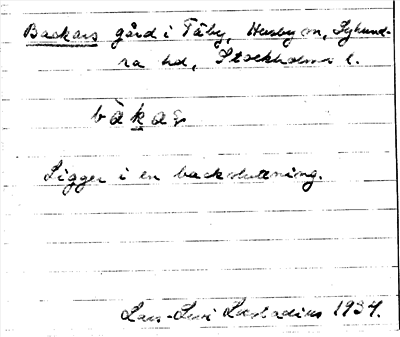 Backars gård i Täby, Husby m, Lyhund-
ra hd, Stockholms l.
bàkar
Ligger i en backsluttning.
Lars-Levi Læstadius 1934.